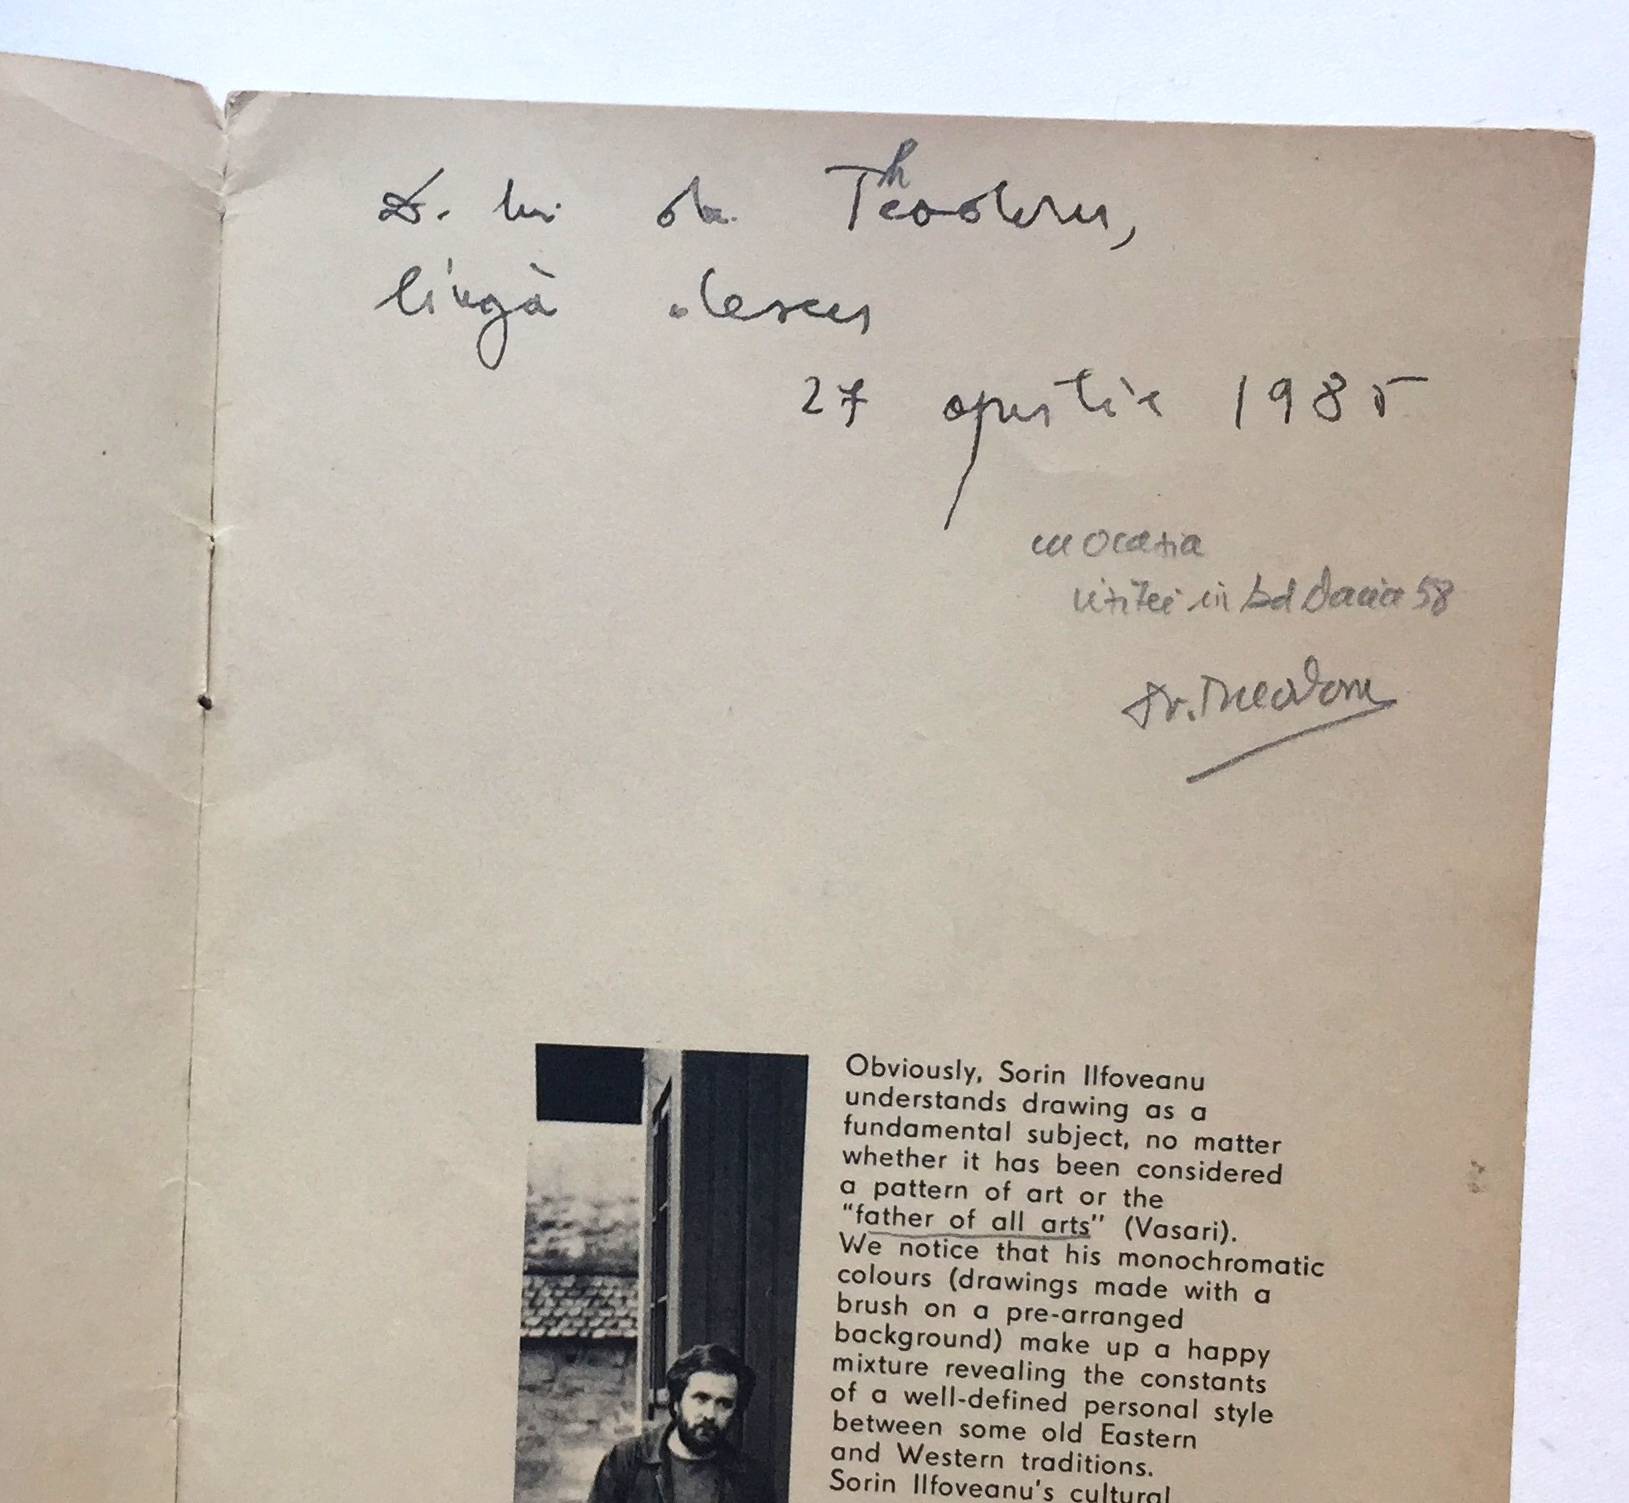 D. lui dr. Theodoru,
lîngă desen
27 aprilie 1985
cu ocazia
vizitei in bd Dacia 58
Dr. Theodoru
Obviously, Sorin Ilfoveanu
understands drawing as a
fundamental subject, no matter
whether it has been considered
a pattern of art or the
“father of all arts” (Vasari).
We notice that his monochromatic
colours (drawings made with a
brush on a pre-arranged
background) make up a happy
mixture revealing the constants
of a well-defined personal style
between some old Eastern
and Western traditions.
Sorin Ilfoveanu's cultural